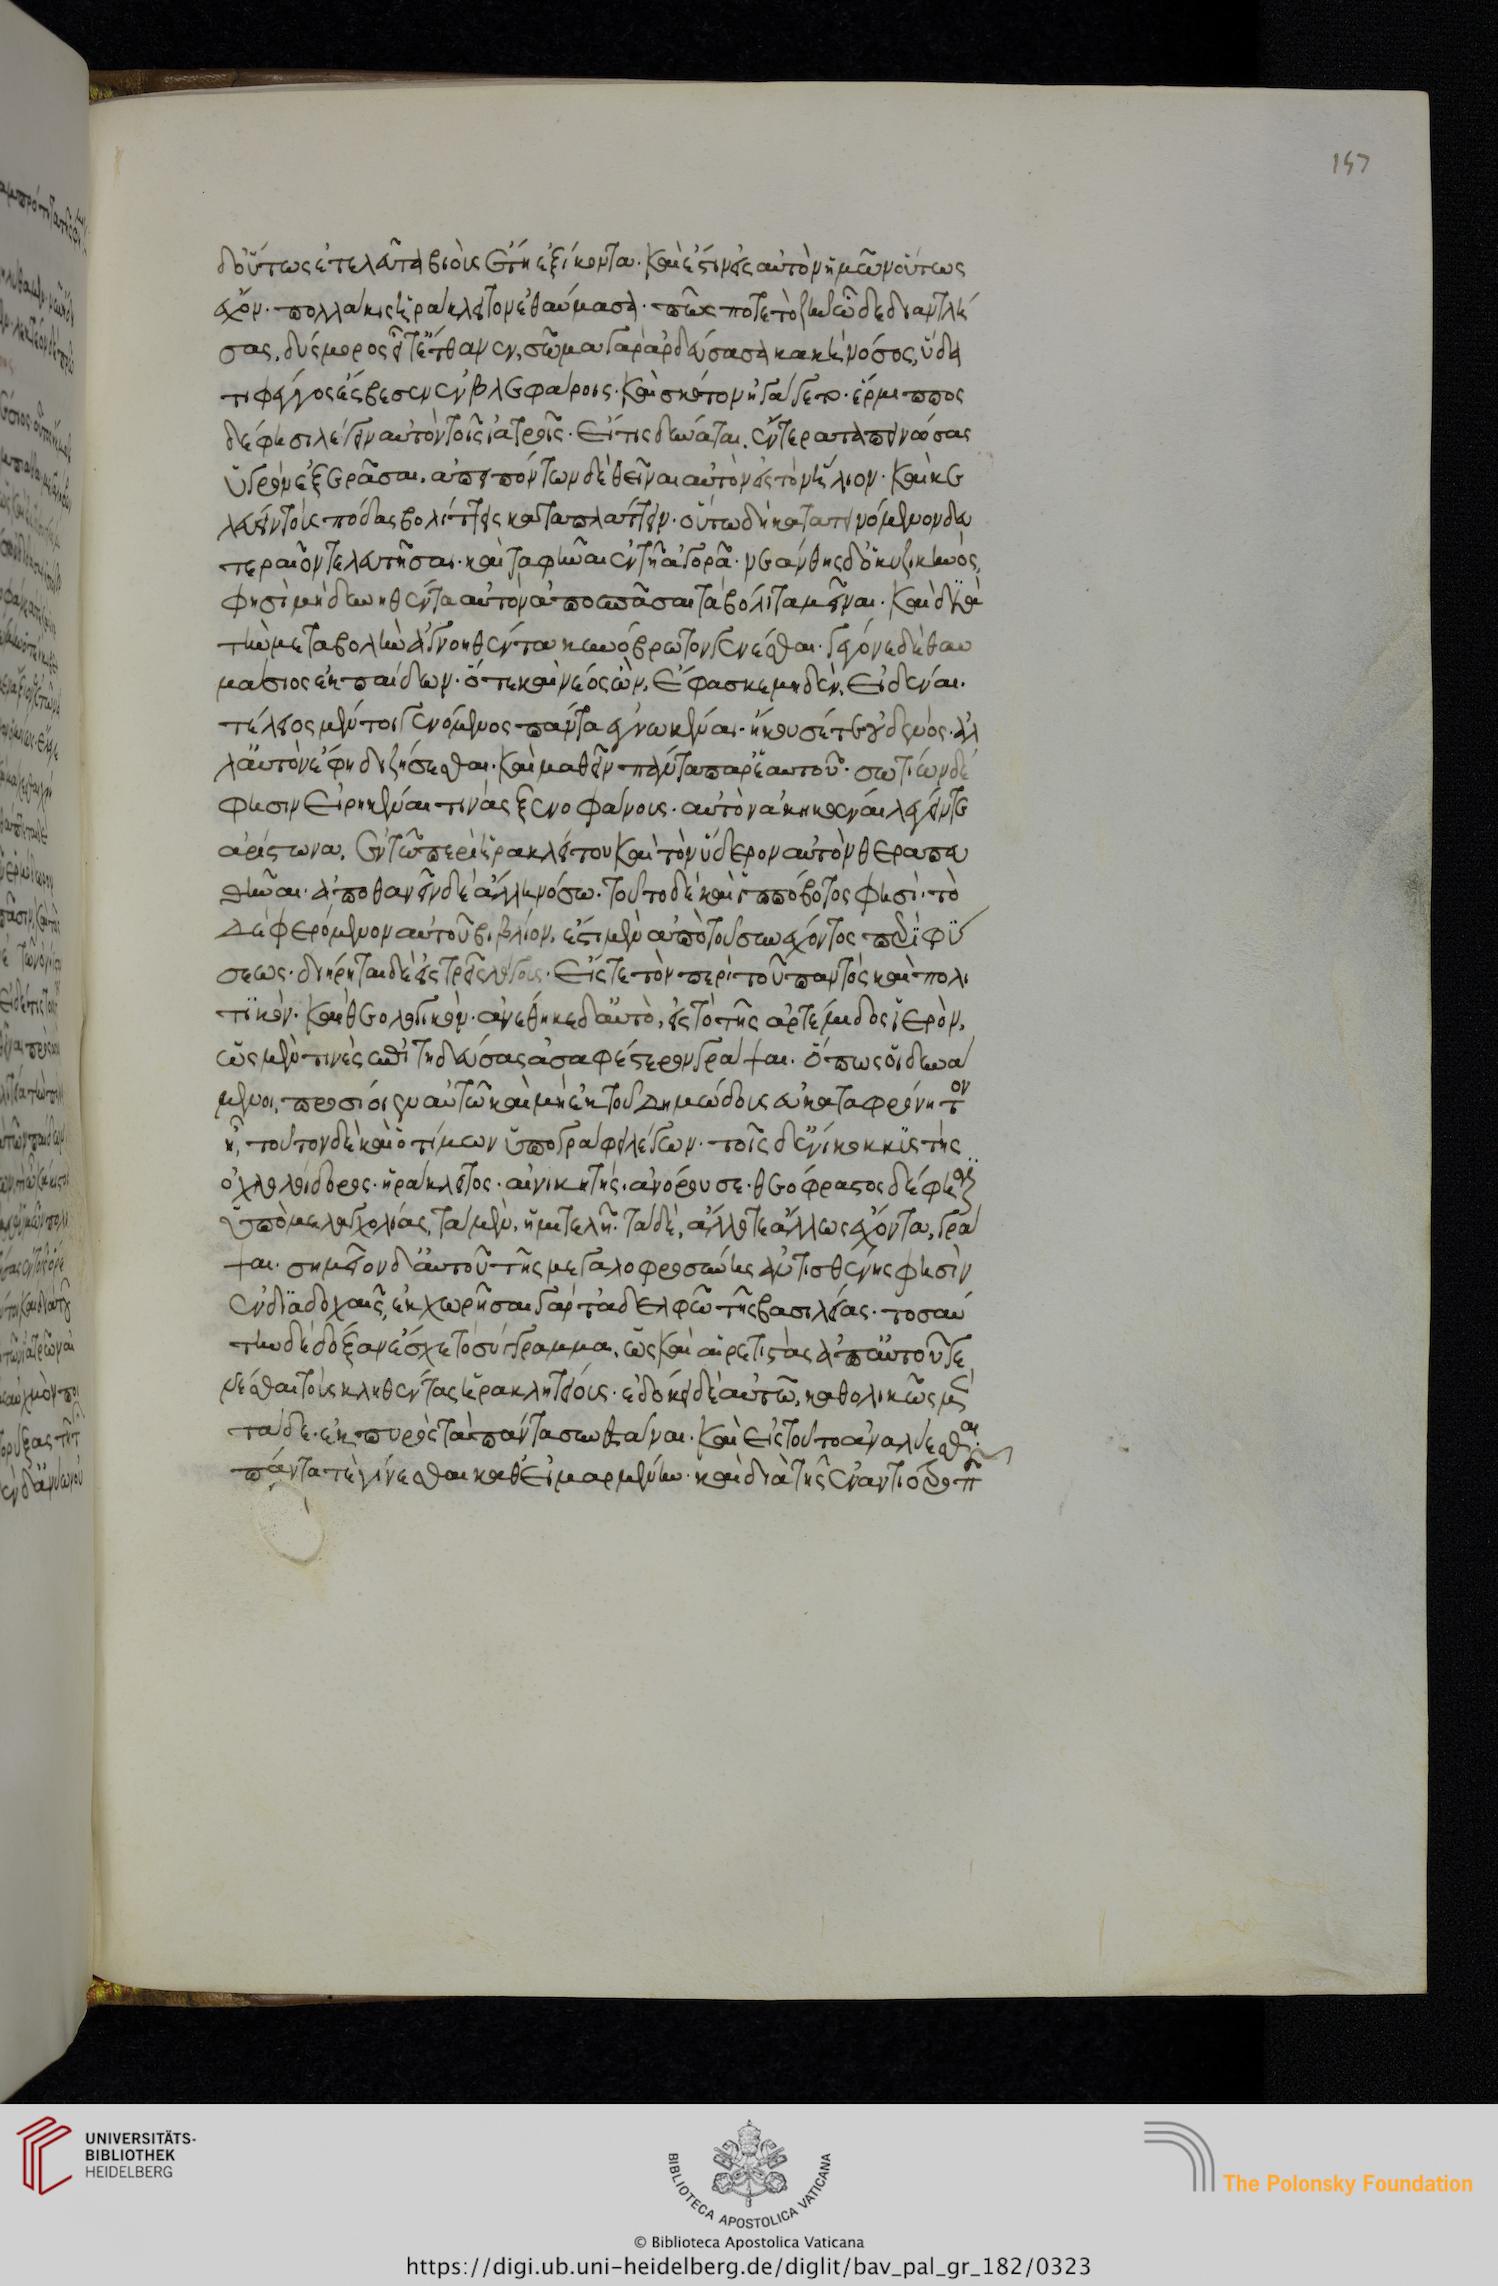 157
δ' οὕτως ἐτελεύτα βιοὺς ἔτη ἑξήκοντα. καὶ ἔστιν εἰς αὐτὸν ἡμῶν οὕτως
ἔχον. πολλάκις ἡράκλειτον ἐθαύμασα. πῶς ποτε τὸ ζῆν ὧδε διαντλή
σας, δύσμορος εἶτ' ἔθανεν, σῶμα γὰρ ἀρδεύσασα κακὴ νόσος, ὕδα
τι φέγγος ἔσβεσεν ἐν βλεφάροις. καὶ σκότον ἠγάγετο. ἕρμιππος
δέ φησι λέγειν αὐτὸν τοῖς ἰατροῖς. εἴ τις δύναται, ἔντερα ταπεινώσας
ὑγρὸν ἐξερᾶσαι, ἀπειπόντων δὲ θεῖναι αὐτὸν εἰς τὸν ἥλιον. καὶ κε
λεύειν τοὺς παῖδας βολίτοις καταπλάττειν. οὕτω δὴ κατατεινόμενον δευ
τεραῖον τελευτῆσαι. καὶ ταφῆναι ἐν τῇ ἀγορᾷ. νεάνθης δ' ὁ κυζικηνὸς,
φησὶ μὴ δυνηθέντα αὐτὸν ἀποσπᾶσαι τὰ βόλιτα μεῖναι. καὶ διὰ
τὴν μεταβολὴν ἀγνοηθέντα κυνόβρωτον γενέσθαι. γέγονε δὲ θαυ
μάσιος ἐκ παίδων. ὅτε καὶ νέος ὢν, ἔφασκε μηδὲν, εἰδέναι.
τέλειος μέντοι γενόμενος πάντα ἐγνωκέναι. ἤκουσέ τε οὐδενός. ἀλ
λ' αὑτὸν ἔφη διζήσασθαι. καὶ μαθεῖν πάντα παρ' ἑαυτοῦ. σωτίων δέ
φησιν εἰρηκέναι τινὰς ξενοφάνους. αὐτὸν ἀκηκοέναι λέγειν τε
ἀρίστωνα, ἐν τῷ περὶ ἡρακλείτου καὶ τὸν ὕδερον αὐτὸν θεραπευ
θῆναι. ἀποθανεῖν δὲ ἄλλη νόσω. τοῦτο δὲ καὶ ἱππόβοτος φησὶ. τὸ
δὲ φερόμενον αὐτοῦ βιβλίον, ἔστι μὲν ἀπὸ τοῦ συνέχοντος περὶ φύ
σεως. διήρηται δὲ εἰς τρεῖς λόγους. εἴς τε τὸν περὶ τοῦ παντὸς καὶ πολι
τικὸν. καὶ θεολογικὸν. ἀνέθηκε δ' αὐτὸ, εἰς τὸ τῆς ἀρτέμιδος ἱερὸν,
ὡς μέν τινες ἐπιτηδεύσας ἀσαφέστερον γράψαι. ὅπως οἱ δυνά
μενοι, προσίοιεν αὐτῷ καὶ μὴ ἐκ τοῦ δημώδους εὐκαταφρόνητον
ᾖ, τοῦτον δὲ καὶ ὁ τίμων ὑπογράφει λέγων. τοῖς δ' ἔνι κοκκυστὴς
ὀχλολοίδορος. ἡράκλειτος. αἰνικτὴς. ἀνόρουσε. θεόφραστος δέ φησιν
ὑπὸ μελαγχολίας, τὰ μὲν, ἡμιτελῆ. τὰ δὲ, ἄλλοτε ἄλλως ἔχοντα, γρά
ψαι. σημεῖον δ' αὐτοῦ τῆς μεγαλοφροσύνης ἀντισθένης φησὶν
ἐν διαδοχαῖς, ἐκχωρῆσαι γὰρ τἀδελφῷ τῆς βασιλείας. τοσαύ
την δὲ δόξαν ἔσχε τὸ σύγγραμμα, ὡς καὶ αἱρετιστὰς ἀπ' αὐτοῦ γε
νέσθαι τοὺς κληθέντας ἡρακλητείους. ἐδόκει δὲ αὐτῷ, καθολικῶς μὲν
τάδε. ἐκ πυρὸς τὰ πάντα συνεστάναι. καὶ εἰς τοῦτο ἀναλύεσθαι.
πάντα τὲ γίνεσθαι καθ' εἱμαρμένην. καὶ διὰ τῆς ἐναντιοτροπ
UNIVERSITÄTS-
BIBLIOTHEK
HEIDELBERG
BIBLIOTECA APOSTOLICA VATICANA
The Polonsky Foundation
© Biblioteca Apostolica Vaticana
https://digi.ub.uni-heidelberg.de/diglit/bav_pal_gr_182/0323